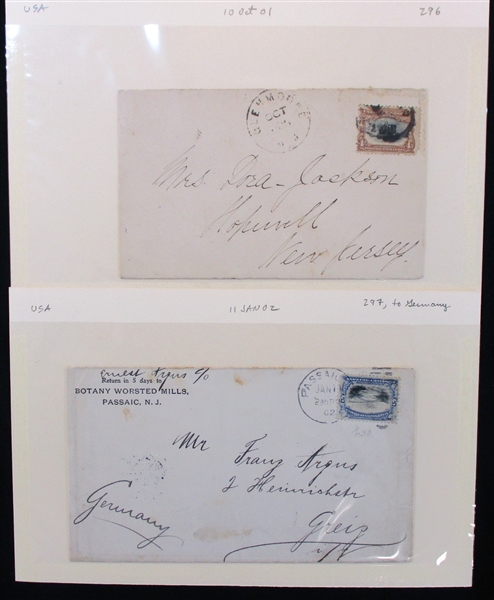 USA 10 Oct 01 296
GLENMOORE
OCT
N J
Mrs. Dora Jackson
Hopewell
New Jersey.
USA 11 JAN 02 297, to Germany
Ernest Argus c/o
Return in 5 days to
BOTANY WORSTED MILLS,
PASSAIC, N. J.
PASSAIC
JAN 11
02
Mr
Franz Argus
2 Heinrichstr
Greiz
Germany